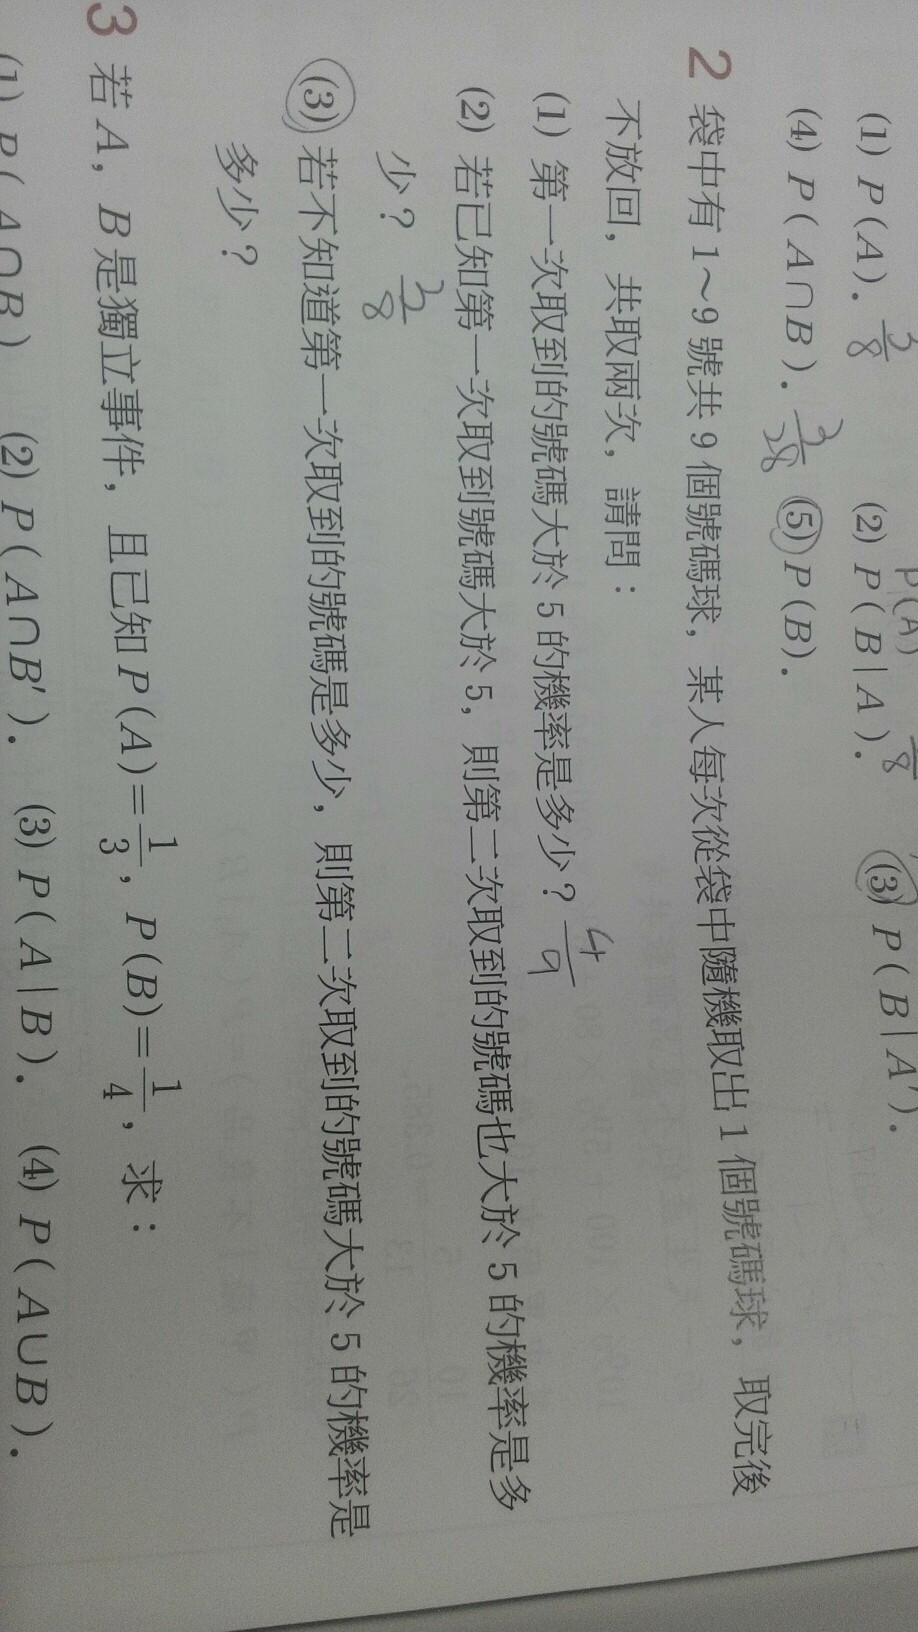 P(A) 8
(1) P(A). 3/8 (2) P(B|A). (3) P(B|A′).
(4) P(A∩B). 3/28 (5) P(B).
2 袋中有 1~9 號共 9 個號碼球，某人每次從袋中隨機取出 1 個號碼球，取完後
不放回，共取兩次，請問：
(1) 第一次取到的號碼大於 5 的機率是多少？ 4/9
(2) 若已知第一次取到號碼大於 5，則第二次取到的號碼也大於 5 的機率是多
少？ 3/8
(3) 若不知道第一次取到的號碼是多少，則第二次取到的號碼大於 5 的機率是
多少？
3 若 A，B 是獨立事件，且已知 P(A)=1/3，P(B)=1/4，求：
(1) P(A∩B) (2) P(A∩B′). (3) P(A|B). (4) P(A∪B).